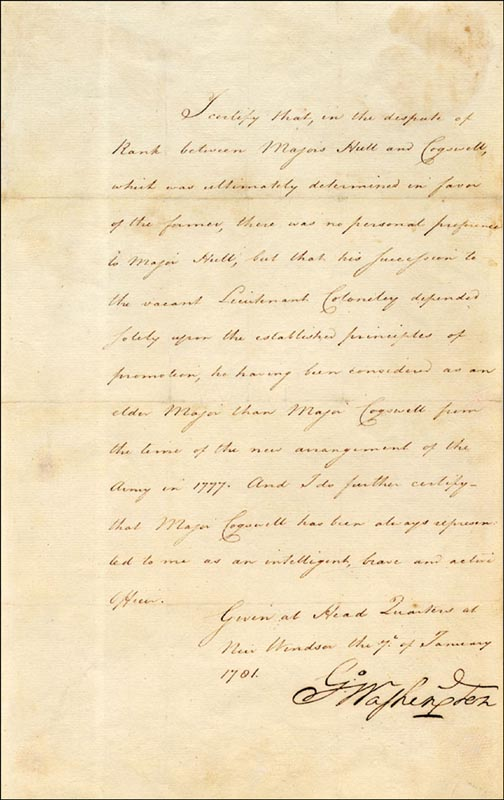 I certify that, in the despute of
Rank between Majors Hull and Cogswell,
which was ultimately determined in favor
of the former, there was no personal preference
to Major Hull, but that his succession to
the vacant Lieutenant Colonelcy depended
solely upon the established principles of
promotion, he having been considered as an
elder Major than Major Cogswell from
the time of the new arrangement of the
Army in 1777. And I do further certify
that Major Cogswell has been always represen
ted to me as an intelligent, brave and active
Officer.
Given at Head Quarters at
New Windsor the 7th. of January
1781.
Go Washington